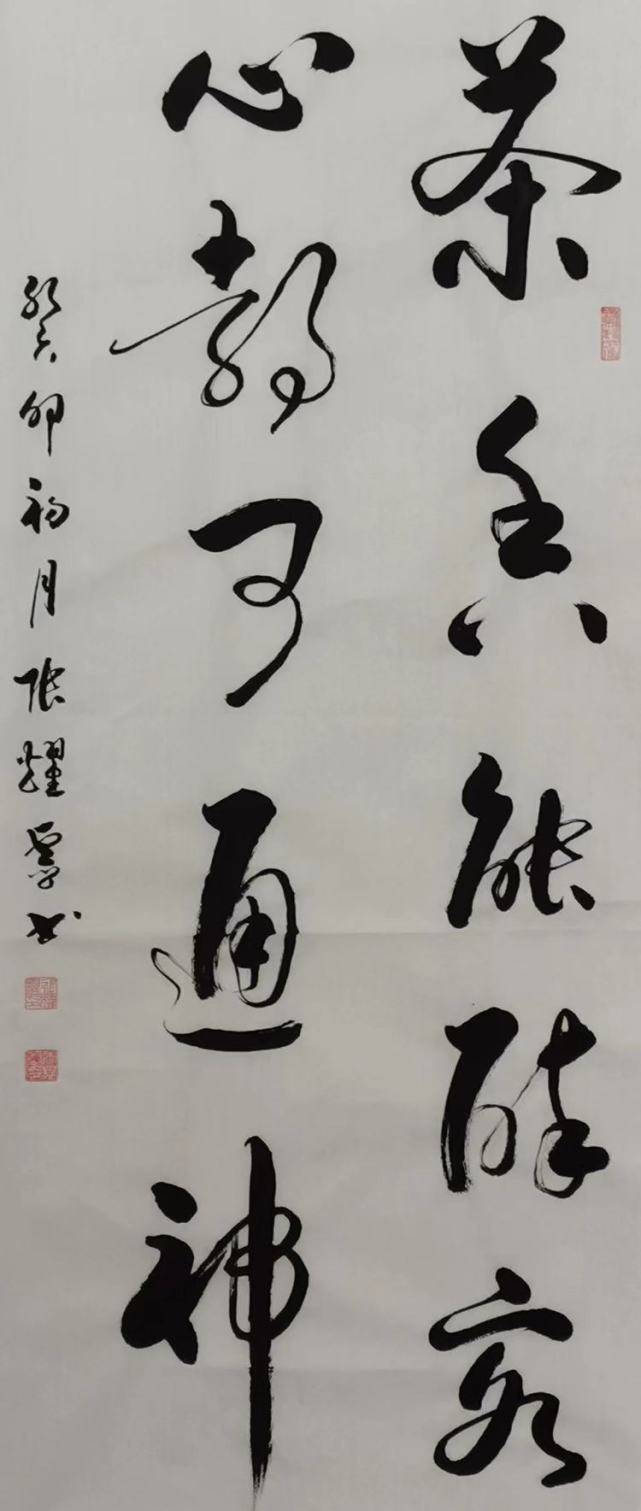 茶香能醉客
心静可通神
癸卯初月张耀书